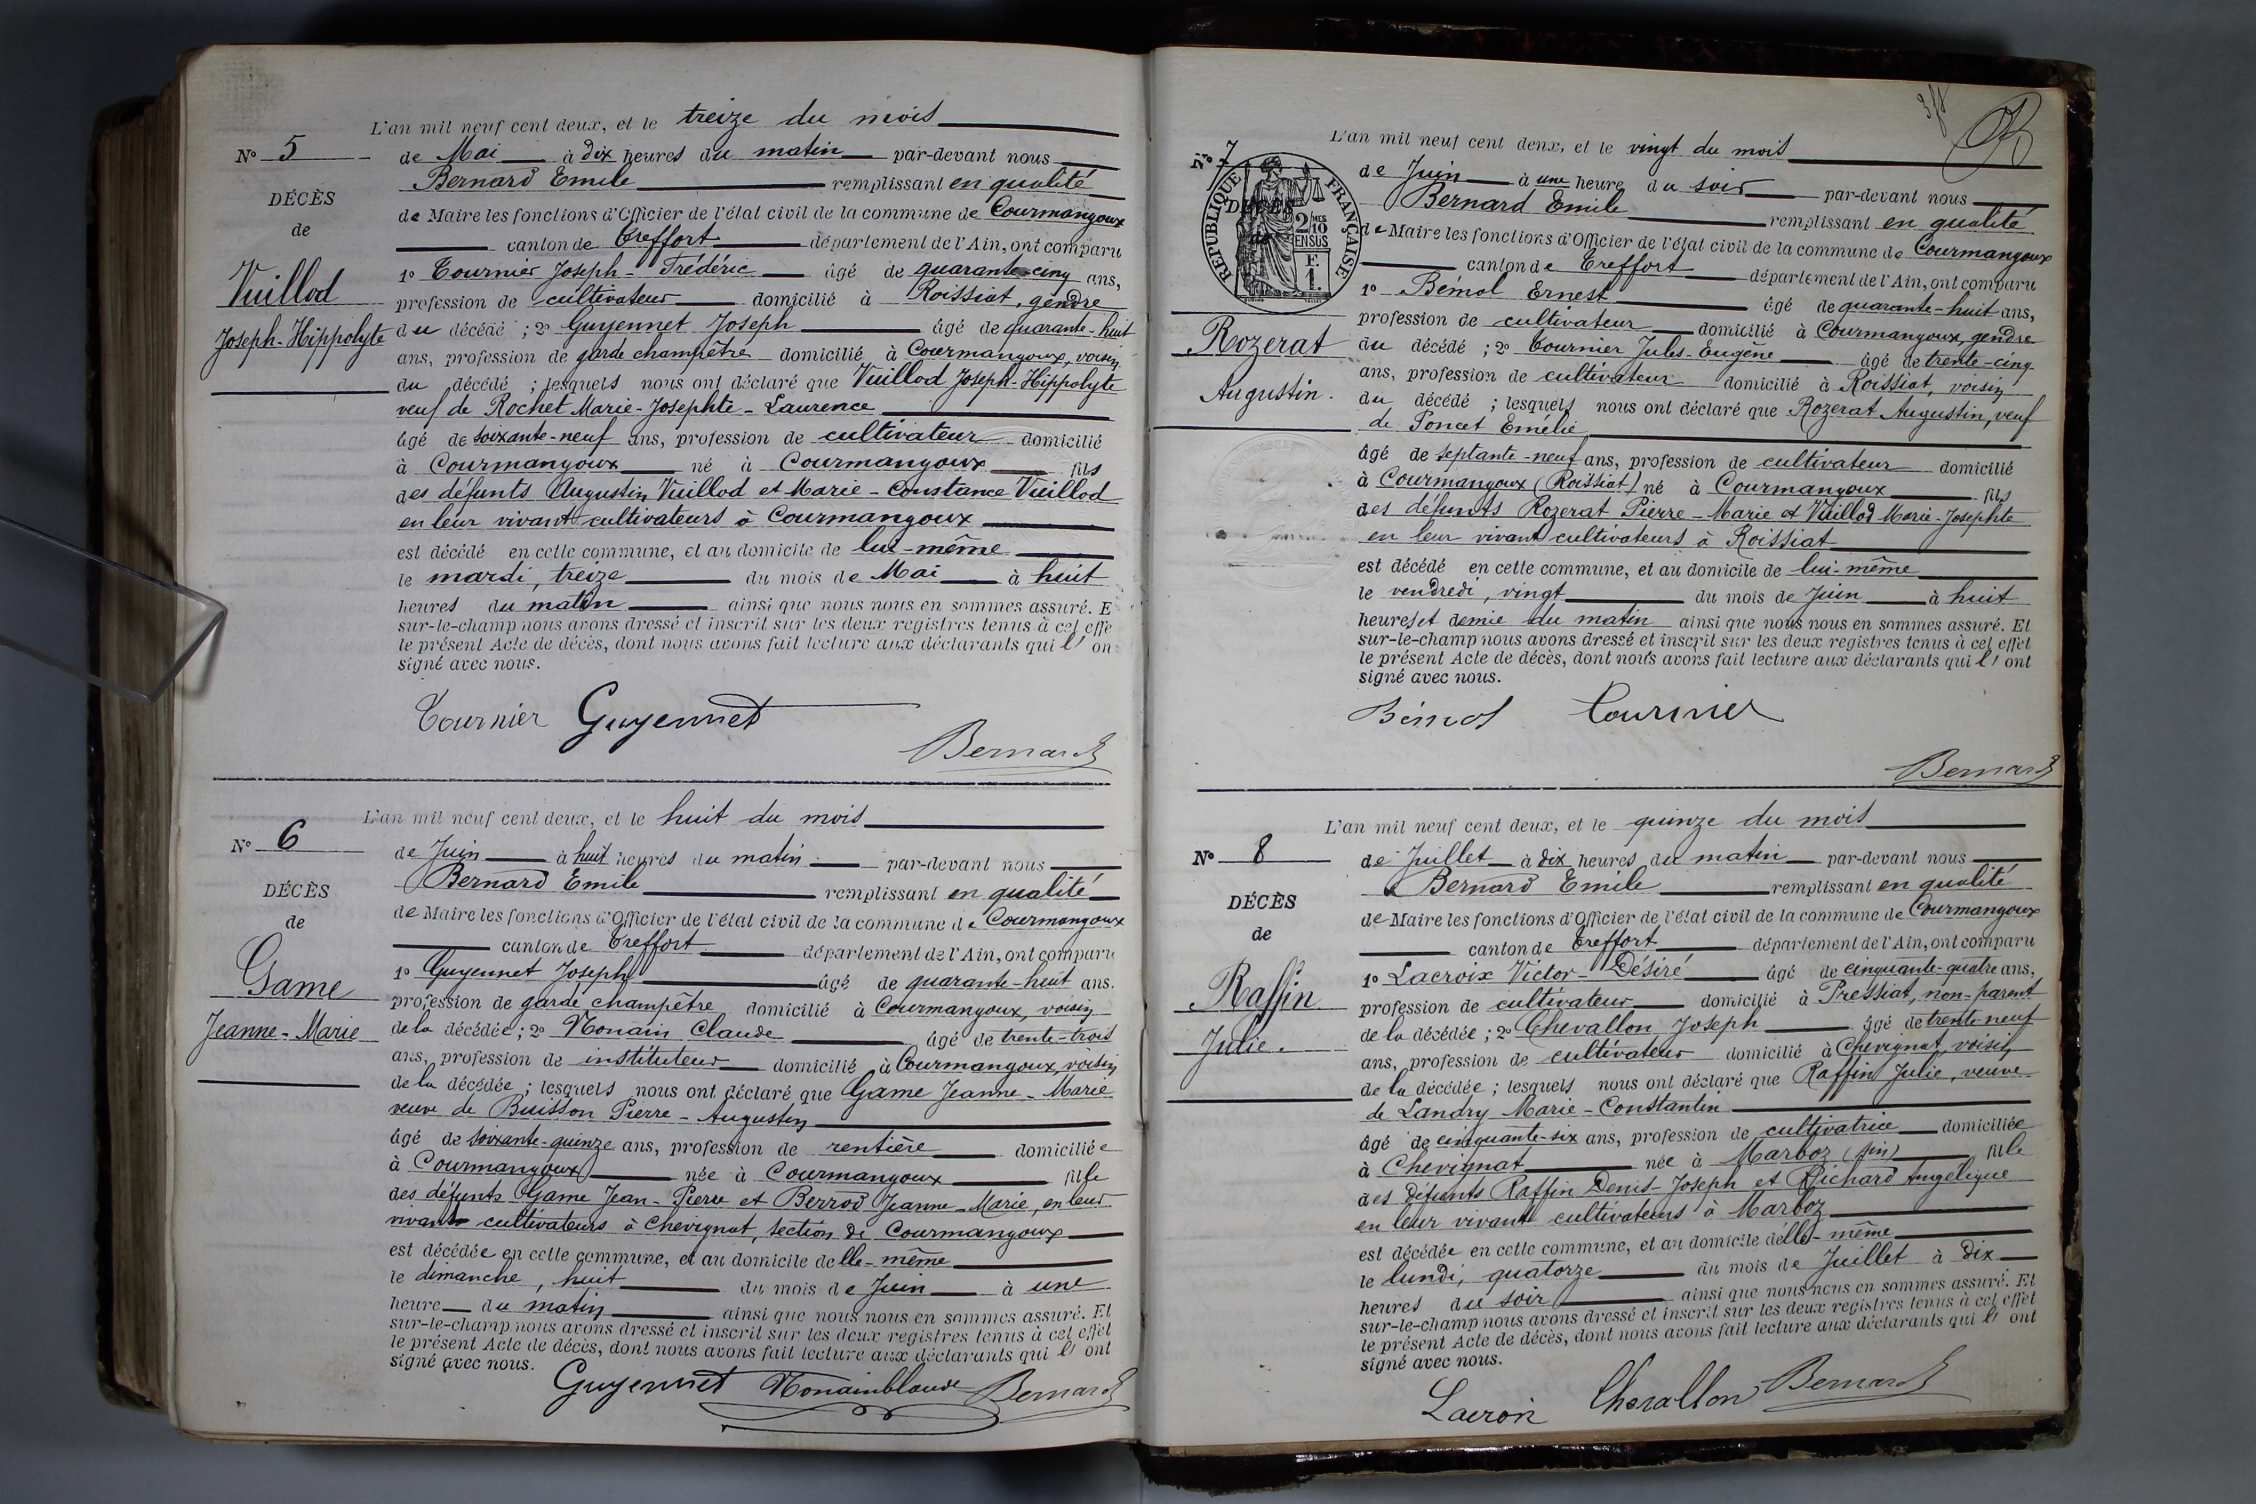 L'an mil neuf cent deux, et le treize du mois
N° 5
de Mai à dix heures du matin par-devant nous
Bernard Emile remplissant en qualité
DÉCÈS
de Maire les fonctions d'Officier de l'état civil de la commune de Courmangoux
de
canton de Treffort département de l'Ain, ont comparu
1° Tournier Joseph-Frédéric âgé de quarante-cinq ans,
Vuillod
profession de cultivateur domicilié à Roissiat, gendre
Joseph-Hippolyte
du décédé ; 2° Guyennet Joseph âgé de quarante-huit
ans, profession de garde champêtre domicilié à Courmangoux, voisin
du décédé ; lesquels nous ont déclaré que Vuillod Joseph-Hippolyte
veuf de Rochet Marie-Josephte-Laurence
âgé de soixante-neuf ans, profession de cultivateur domicilié
à Courmangoux né à Courmangoux fils
des défunts Augustin Vuillod et Marie-Constance Vuillod
en leur vivant cultivateurs à Courmangoux
est décédé en cette commune, et au domicile de lui-même
le mardi, treize du mois de Mai à huit
heures du matin ainsi que nous nous en sommes assuré. E
sur-le-champ nous avons dressé et inscrit sur les deux registres tenus à cet effe
le présent Acte de décès, dont nous avons fait lecture aux déclarants qui l' on
signé avec nous.
Tournier Guyennet
Bernard
L'an mil neuf cent deux, et le huit du mois
N° 6
de Juin à huit heures du matin par-devant nous
Bernard Emile remplissant en qualité
DÉCÈS
de Maire les fonctions d'Officier de l'état civil de la commune de Courmangoux
de
canton de Treffort département de l'Ain, ont comparu
1° Guyennet Joseph âgé de quarante-huit ans.
Game
profession de garde champêtre domicilié à Courmangoux, voisin
Jeanne-Marie
de la décédée ; 2° Nonain Claude âgé de trente-trois
ans, profession de instituteur domicilié à Courmangoux, voisin
de la décédée ; lesquels nous ont déclaré que Game Jeanne-Marie
veuve de Buisson Pierre-Augustin
âgé de soixante-quinze ans, profession de rentière domiciliée
à Courmangoux née à Courmangoux fille
des défunts Game Jean-Pierre et Berrod Jeanne-Marie, en leur
vivant cultivateurs à Chevignat, section de Courmangoux
est décédée en cette commune, et au domicile delle-même
le dimanche, huit du mois de Juin à une
heure du matin ainsi que nous nous en sommes assuré. Et
sur-le-champ nous avons dressé et inscrit sur les deux registres tenus à cet effet
le présent Acte de décès, dont nous avons fait lecture aux déclarants qui l' ont
signé avec nous.
Guyennet Nonainclaude Bernard
318
L'an mil neuf cent deux, et le vingt du mois
N° 7
de Juin à une heure du soir par-devant nous
RÉPUBLIQUE FRANÇAISE
2 MES
10
EN SUS
F.
1.
DÉCÈS
de
Bernard Emile remplissant en qualité
de Maire les fonctions d'Officier de l'état civil de la commune de Courmangoux
canton de Treffort département de l'Ain, ont comparu
1° Bémol Ernest âgé de quarante-huit ans,
profession de cultivateur domicilié à Courmangoux, gendre
Rozerat
du décédé ; 2° Tournier Jules-Eugène âgé de trente-cinq
ans, profession de cultivateur domicilié à Roissiat, voisin
Augustin.
du décédé ; lesquels nous ont déclaré que Rozerat Augustin, veuf
de Poncet Emélie
âgé de septante-neuf ans, profession de cultivateur domicilié
à Courmangoux (Roissiat) né à Courmangoux fils
des défunts Rozerat Pierre-Marie et Vuillod Marie-Josephte
en leur vivant cultivateurs à Roissiat
est décédé en cette commune, et au domicile de lui-même
le vendredi, vingt du mois de Juin à huit
heures et demie du matin ainsi que nous nous en sommes assuré. Et
sur-le-champ nous avons dressé et inscrit sur les deux registres tenus à cet effet
le présent Acte de décès, dont nous avons fait lecture aux déclarants qui l' ont
signé avec nous.
Bémol Tournier
Bernard
L'an mil neuf cent deux, et le quinze du mois
N° 8
de Juillet à dix heures du matin par-devant nous
Bernard Emile remplissant en qualité
DÉCÈS
de Maire les fonctions d'Officier de l'état civil de la commune de Courmangoux
de
canton de Treffort département de l'Ain, ont comparu
1° Lacroix Victor-Désiré âgé de cinquante-quatre ans,
Raffin
profession de cultivateur domicilié à Pressiat, non-parent
Julie.
de la décédée ; 2° Chevallon Joseph âgé de trente-neuf
ans, profession de cultivateur domicilié à Chevignat, voisin
de la décédée ; lesquels nous ont déclaré que Raffin Julie, veuve
de Landry Marie-Constantin
âgé de cinquante-six ans, profession de cultivatrice domiciliée
à Chevignat née à Marboz (Ain) fille
des défunts Raffin Denis-Joseph et Richard Angélique
en leur vivant cultivateurs à Marboz
est décédée en cette commune, et au domicile d'elle-même
le lundi, quatorze du mois de Juillet à dix
heures du soir ainsi que nous nous en sommes assuré. Et
sur-le-champ nous avons dressé et inscrit sur les deux registres tenus à cet effet
le présent Acte de décès, dont nous avons fait lecture aux déclarants qui l' ont
signé avec nous.
Lacroix Chevallon Bernard